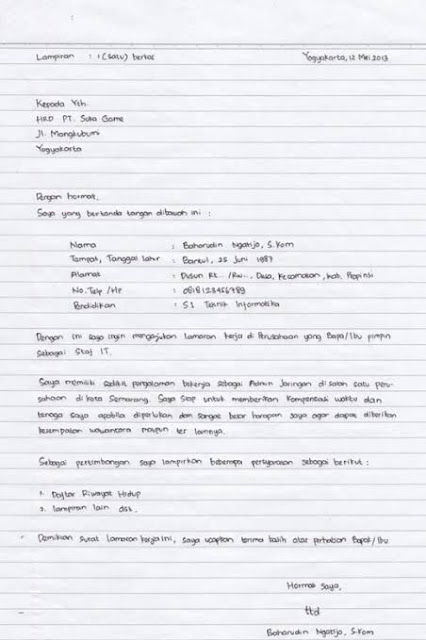 Lampiran : 1 (satu) berkas Yogyakarta, 12 Mei 2013
Kepada Yth.
HRD PT. Suka Game
Jl. Mangkubumi
Yogyakarta
Dengan hormat,
Saya yang bertanda tangan dibawah ini :
Nama : Baharudin Ngatijo, S.Kom
Tempat, Tanggal lahir : Bantul, 25 Juni 1987
Alamat : Dusun Rt... /Rw..., Desa, Kecamatan, Kab, Propinsi
No. Telp /Hp : 0818123456789
Pendidikan : S1 Teknik Informatika
Dengan ini saya ingin mengajukan lamaran kerja di Perusahaan yang Bapa/Ibu pimpin
sebagai Staf IT.
Saya memiliki sedikit pengalaman bekerja sebagai Admin Jaringan di salah satu peru-
sahaan di kota Semarang. Saya Siap untuk memberikan kompensasi waktu dan
tenaga saya apabila diperlukan dan sangat besar harapan saya agar dapat diberikan
kesempatan wawancara maupun tes lainnya.
Sebagai pertimbangan saya lampirkan beberapa persyaratan sebagai berikut :
1. Daftar Riwayat Hidup
2. lampiran lain dsb.
Demikian surat lamaran kerja ini, saya ucapkan terima kasih atas perhatian Bapak/Ibu
Hormat Saya,
ttd
Baharudin Ngatijo, S.Kom